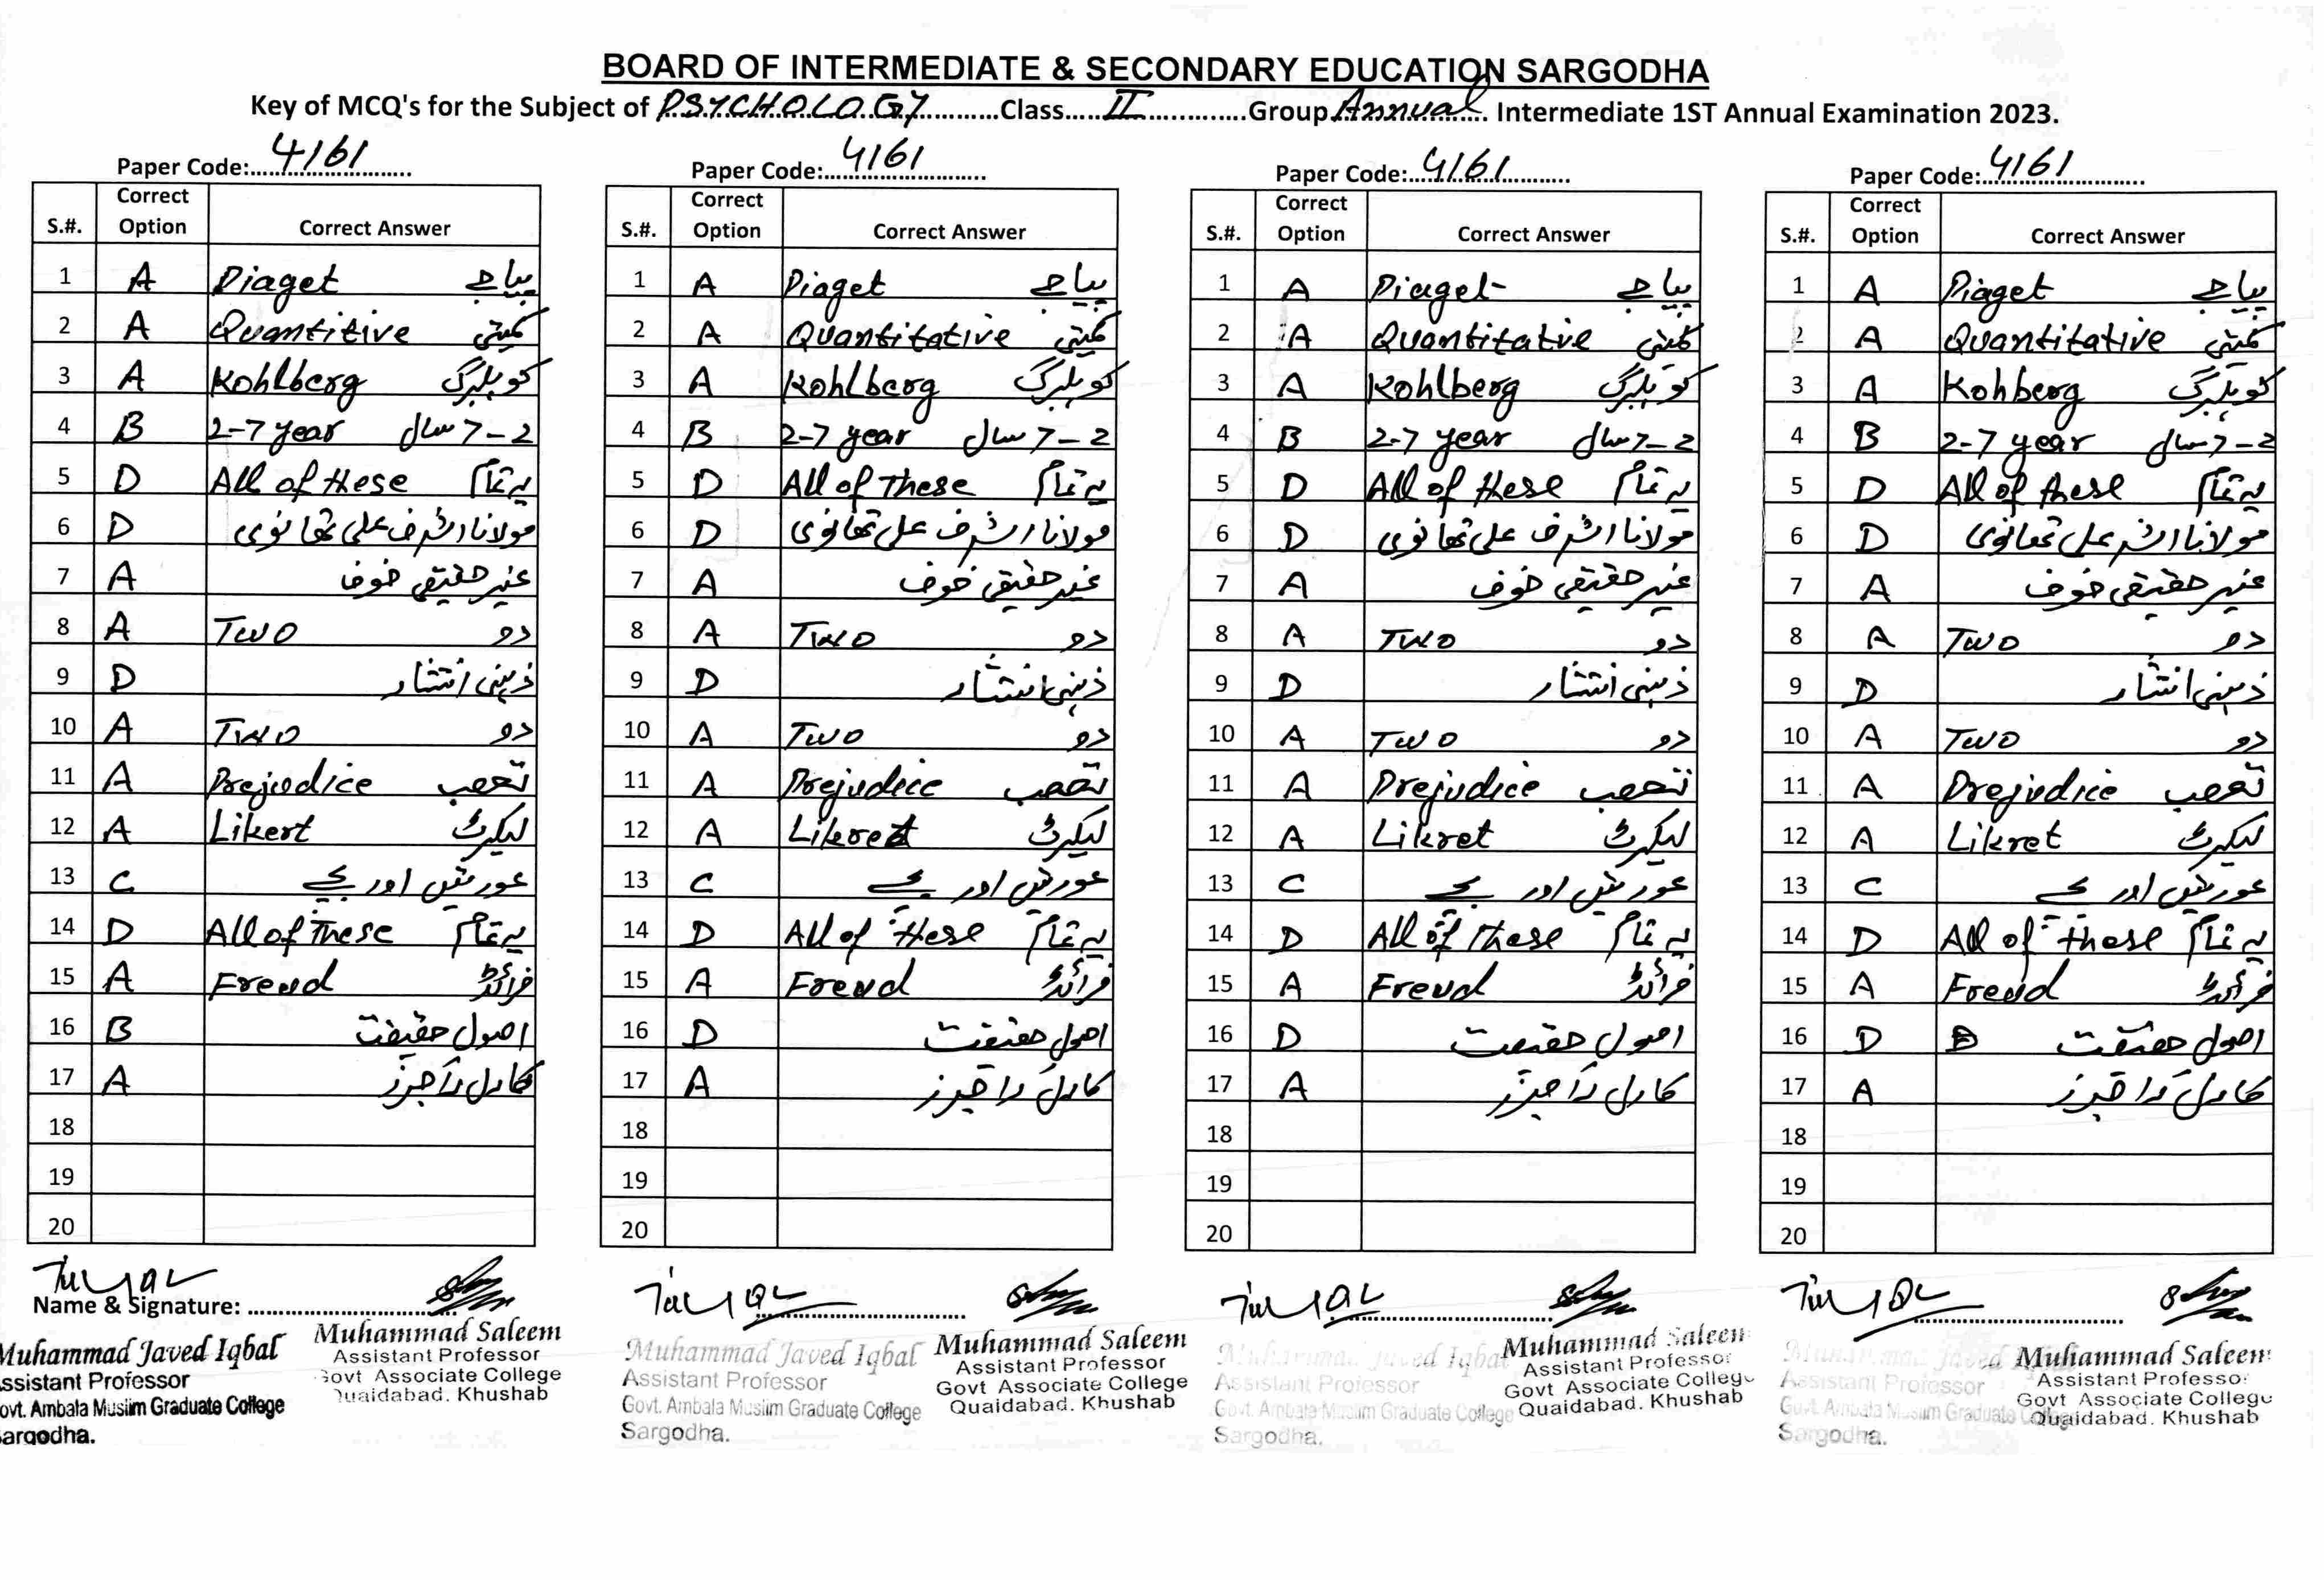 BOARD OF INTERMEDIATE & SECONDARY EDUCATION SARGODHA
Key of MCQ's for the Subject of PSYCHOLOGY Class II Group Annual Intermediate 1ST Annual Examination 2023.
Paper Code: 4161
S.#. Correct Option Correct Answer
1 A Piaget پیاجے
2 A Quantitive کمیتی
3 A Kohlberg کوہلبرگ
4 B 2-7 year 2-7 سال
5 D All of these یہ تمام
6 D مولانا اشرف علی تھانوی
7 A غیر حقیقی خوف
8 A Two دو
9 D ذہنی انتشار
10 A Two دو
11 A Prejudice تعصب
12 A Likert لیکرٹ
13 C عورتیں اور بچے
14 D All of These یہ تمام
15 A Freud فرائڈ
16 B اصول حقیقت
17 A کارل راجرز
18
19
20
Name & Signature:
Muhammad Javed Iqbal
Assistant Professor
Govt. Ambala Muslim Graduate College
Sargodha.
Muhammad Saleem
Assistant Professor
Govt Associate College
Quaidabad. Khushab
Paper Code: 4161
S.#. Correct Option Correct Answer
1 A Piaget پیاجے
2 A Quantitative کمیتی
3 A Kohlberg کوہلبرگ
4 B 2-7 year 2-7 سال
5 D All of These یہ تمام
6 D مولانا اشرف علی تھانوی
7 A غیر حقیقی خوف
8 A Two دو
9 D ذہنی انتشار
10 A Two دو
11 A Prejudice تعصب
12 A لیکرٹ
13 C عورتیں اور بچے
14 D All of these یہ تمام
15 A Freud فرائڈ
16 D اصول حقیقت
17 A کارل راجرز
18
19
20
Muhammad Javed Iqbal
Assistant Professor
Govt. Ambala Muslim Graduate College
Sargodha.
Muhammad Saleem
Assistant Professor
Govt Associate College
Quaidabad. Khushab
Paper Code: 4161
S.#. Correct Option Correct Answer
1 A Piaget پیاجے
2 A Quantitatve کمیتی
3 A Kohlberg کوہلبرگ
4 B 2-7 year 2-7 سال
5 D All of these یہ تمام
6 D مولانا اشرف علی تھانوی
7 A غیر حقیقی خوف
8 A Two دو
9 D ذہنی انتشار
10 A Two دو
11 A Prejudice تعصب
12 A Likret لیکرٹ
13 C عورتیں اور بچے
14 D All of these یہ تمام
15 A Freud فرائڈ
16 D اصول حقیقت
17 A کارل راجرز
18
19
20
Muhammad Javed Iqbal
Assistant Professor
Govt. Ambala Muslim Graduate College
Sargodha.
Muhammad Saleem
Assistant Professor
Govt Associate College
Quaidabad. Khushab
Paper Code: 4161
S.#. Correct Option Correct Answer
1 A Piaget پیاجے
2 A Quantitative کمیتی
3 A Kohberg کوہلبرگ
4 B 2-7 year 2-7 سال
5 D All of these یہ تمام
6 D مولانا اشرف علی تھانوی
7 A غیر حقیقی خوف
8 A Two دو
9 D ذہنی انتشار
10 A Two دو
11 A Prejudice تعصب
12 A Likret لیکرٹ
13 C عورتیں اور بچے
14 D All of these یہ تمام
15 A Freud فرائڈ
16 D اصول حقیقت
17 A کارل راجرز
18
19
20
Muhammad Javed Iqbal
Assistant Professor
Govt. Ambala Muslim Graduate College
Sargodha.
Muhammad Saleem
Assistant Professor
Govt Associate College
Quaidabad. Khushab